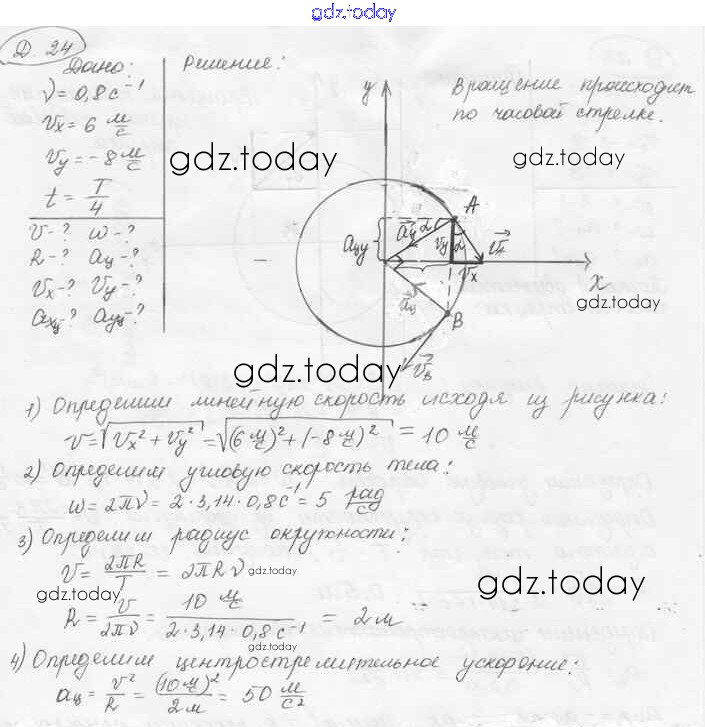 gdz.today
Д. 24
Дано:
ν = 0,8 с⁻¹
Vx = 6 м/с
Vy = -8 м/с
t = T/4
V-? ω-?
R-? aц-?
Vx-? Vy-?
aхц-? aуц-?
Решение:
Вращение происходит
по часовой стрелке.
gdz.today
gdz.today
y
A
aцy
aц
α
Vy
α
VA
Vx
x
gdz.today
aц
B
VB
gdz.today
1) Определим линейную скорость исходя из рисунка:
V = √(Vx² + Vy²) = √((6 м/с)² + (-8 м/с)²) = 10 м/с
2) Определим угловую скорость тела:
ω = 2πν = 2·3,14·0,8 с⁻¹ = 5 рад/с
3) Определим радиус окружности:
V = 2πR/T = 2πRν
gdz.today
gdz.today
gdz.today
R = V/2πν = 10 м/с / 2·3,14·0,8 с⁻¹ = 2 м
gdz.today
4) Определим центростремительное ускорение:
aц = V²/R = (10 м/с)²/2 м = 50 м/с²